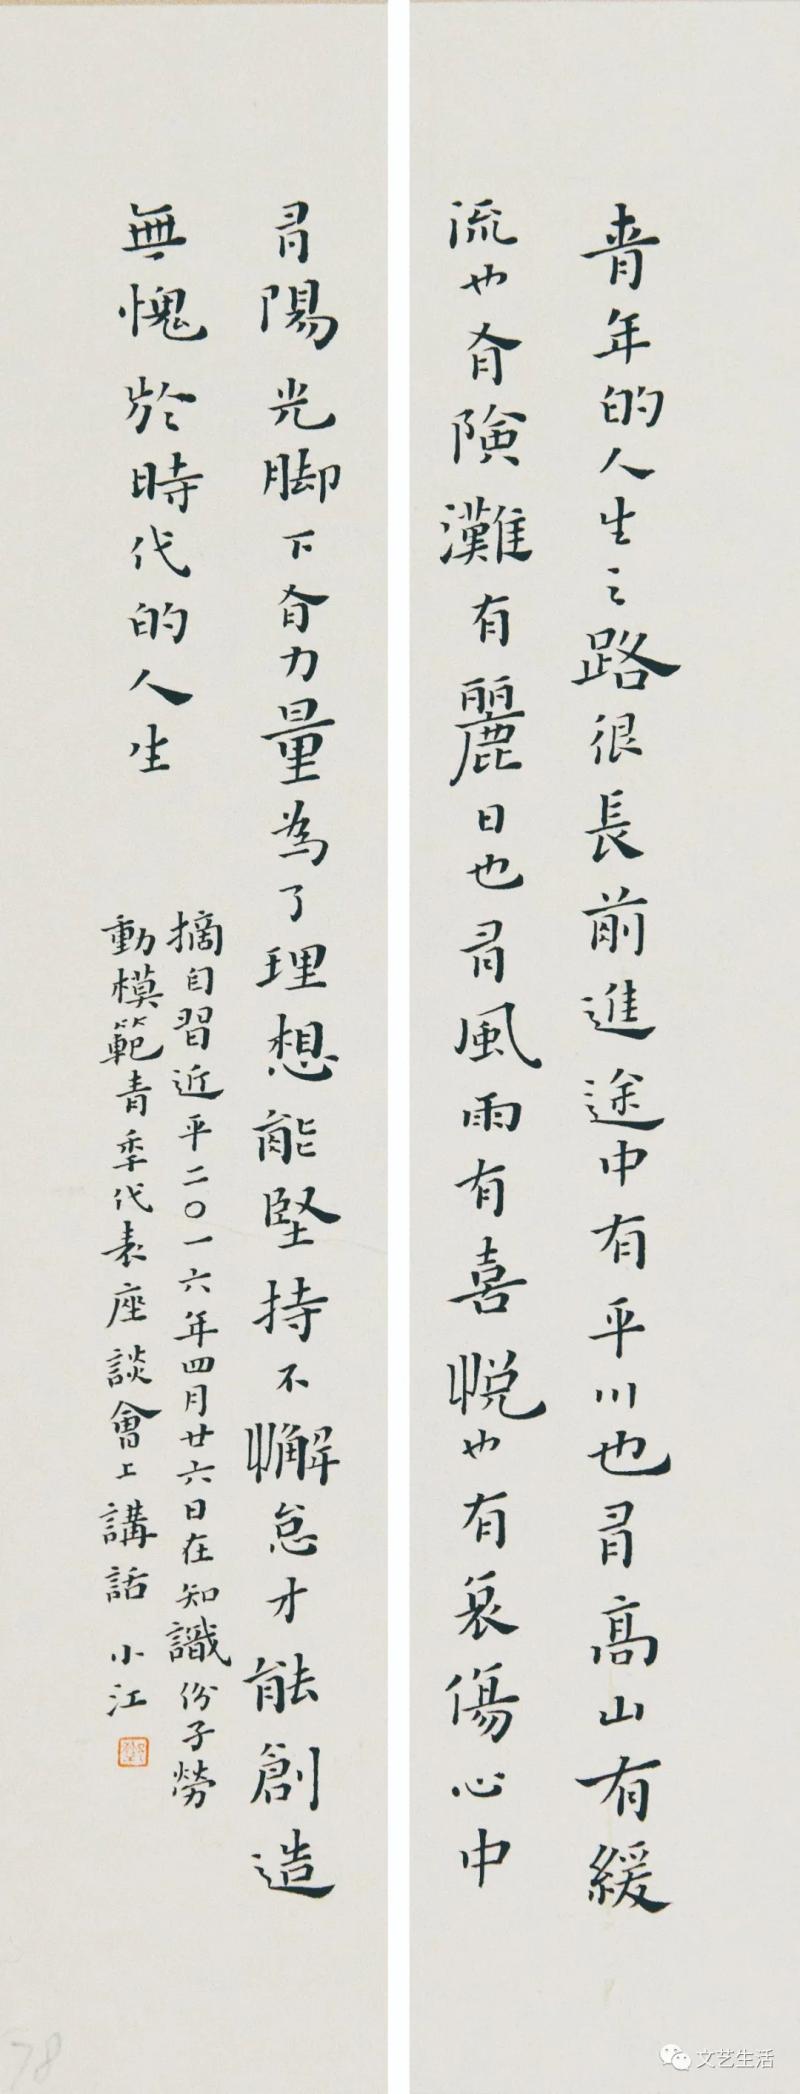 青年的人生之路很長前進途中有平川也有高山有緩
流也有險灘有麗日也有風雨有喜悅也有哀傷心中
有陽光脚下有力量為了理想能堅持不懈怠才能創造
無愧於時代的人生
摘自習近平二〇一六年四月廿六日在知識份子勞
動模範青年代表座談會上講話 小江
78
文艺生活